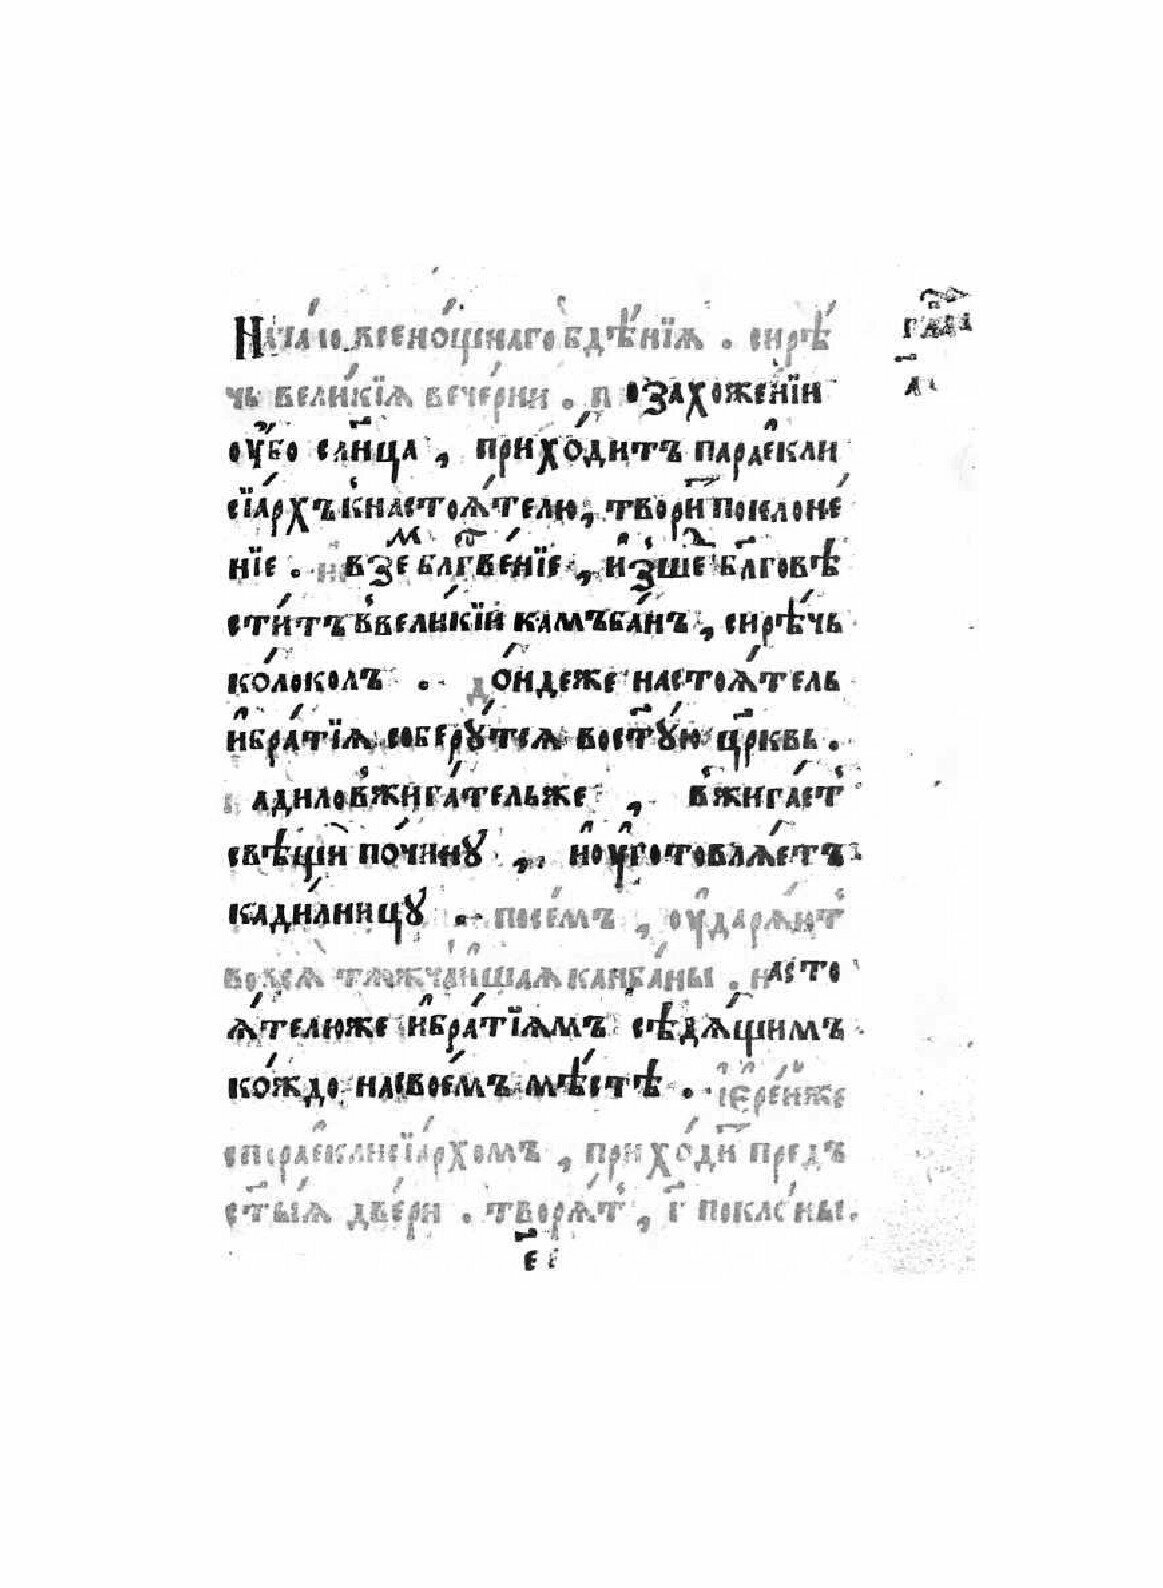 Нача́ло всено́щнаго бдѣ́нїѧ . сирѣ́
глава̀
чь вели́кїѧ вече́рни . п озахоже́нїи
а҃
оу҆́бо сл҃нца , прихо́дитъ параекли
сїа́рхъ кнастоѧ́телю , твори́ поклоне́
нїе . взе́м бл҃гⷭ҇ве́нїе , и҆зше́д бл҃говѣ
сти́тъ ввели́кїй камъба́нъ , сирѣ́чь
ко́локолъ . До́ндеже настоѧ́тель
и҆бра́тїѧ соберу́тсѧ вост҃у́ю цр҃ковь .
кадиловжига́тельже , вжига́ет
свѣщи́ почи́ну , и҆оу҆готовлѧ́етъ
кади́лницу . посе́мъ , оу҆дарѧ́ют
вовсѧ тѧжча́йшаѧ канба́ны . насто
ѧ́телюже и҆бра́тїѧмъ сѣдѧ́щимъ
ко́ждо насвое́мъ мѣ́стѣ . і҆ере́йже
спараеклисїа́рхомъ , прихо́ди предъ
ст҃ы́ѧ две́ри . творѧ́т , г҃ покло́ны .
є҃